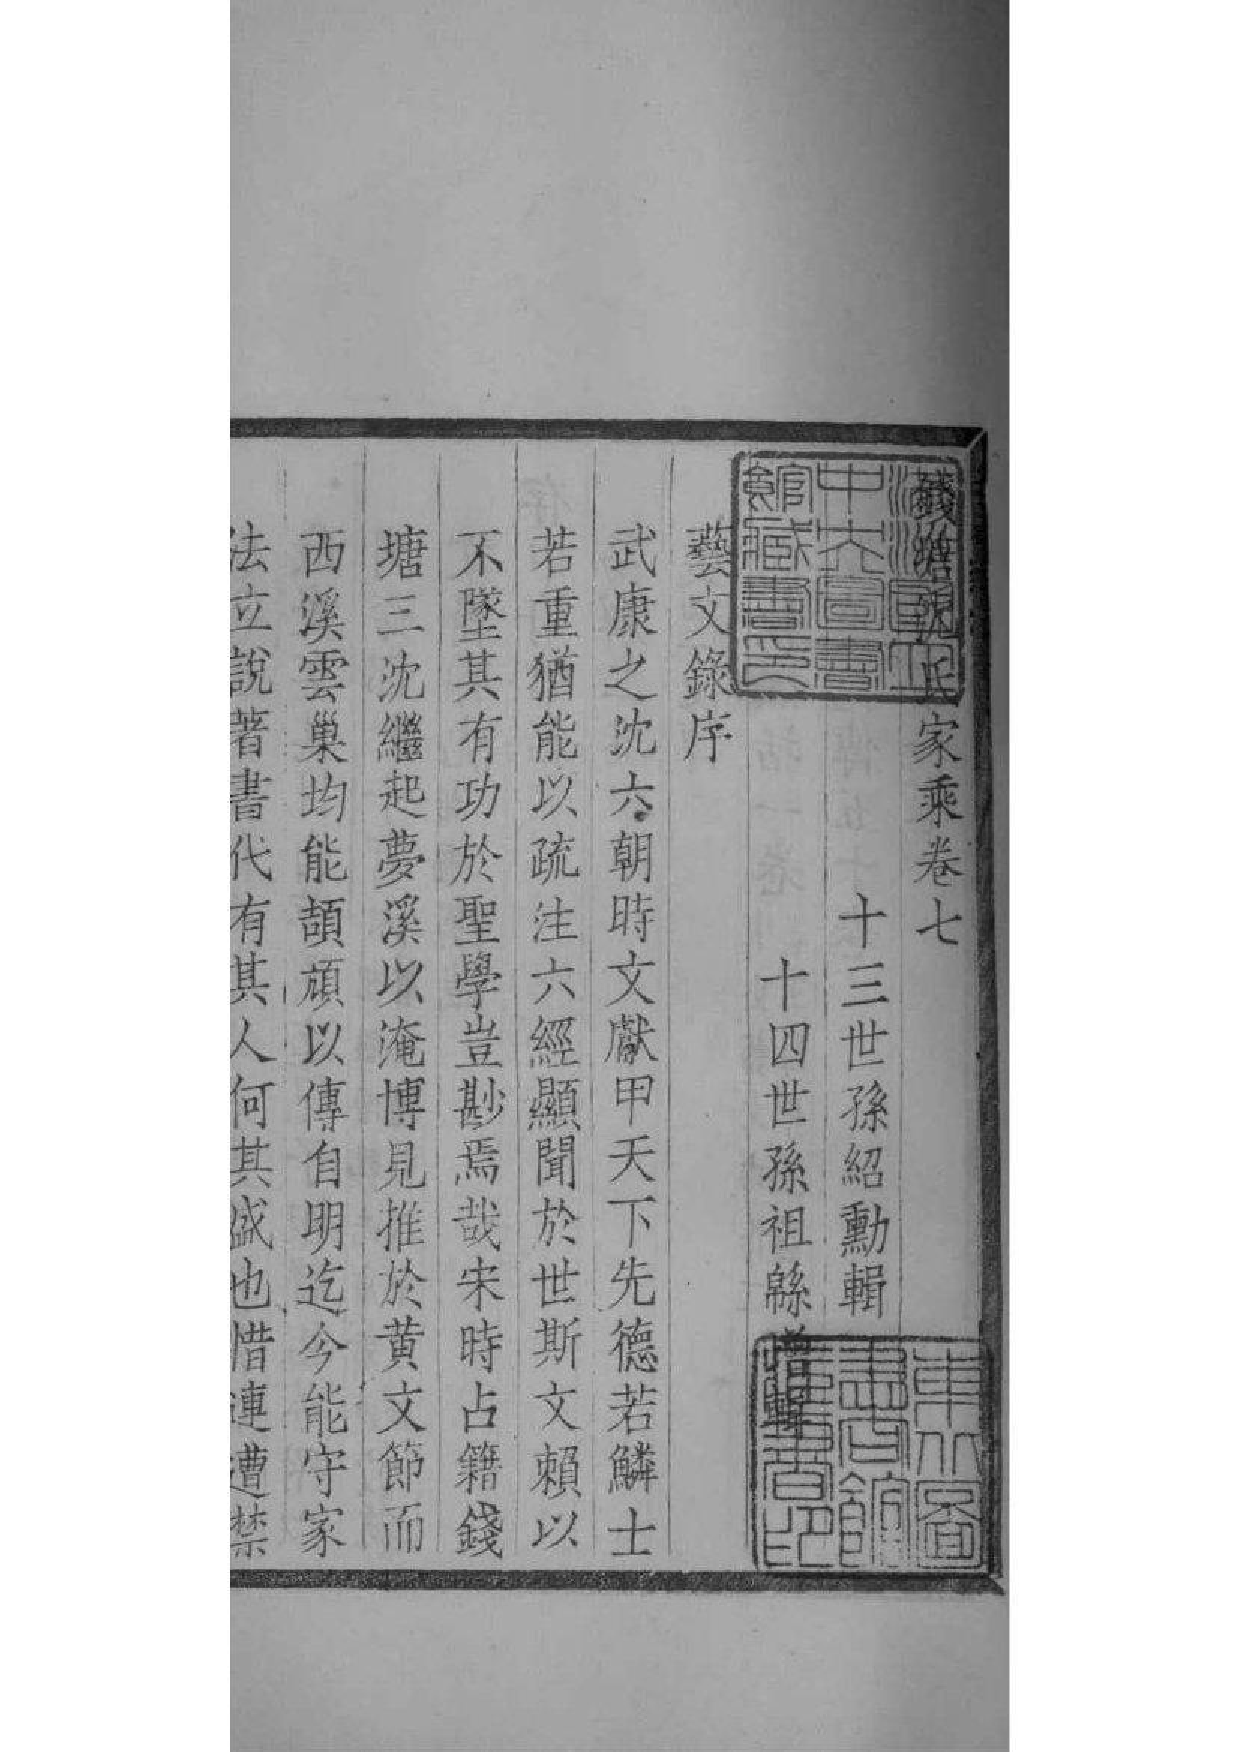 錢塘沈氏家乘卷七
十三世孫紹勳輯
十四世孫祖緜增輯
藝文錄序
武康之沈六朝時文獻甲天下先德若鱗士
若重猶能以疏注六經顯聞於世斯文賴以
不墜其有功於聖學豈尠焉哉宋時占籍錢
塘三沈繼起夢溪以淹博見推於黄文節而
西溪雲巢均能頡頏以傳自明迄今能守家
法立說著書代有其人何其盛也惜連遭禁